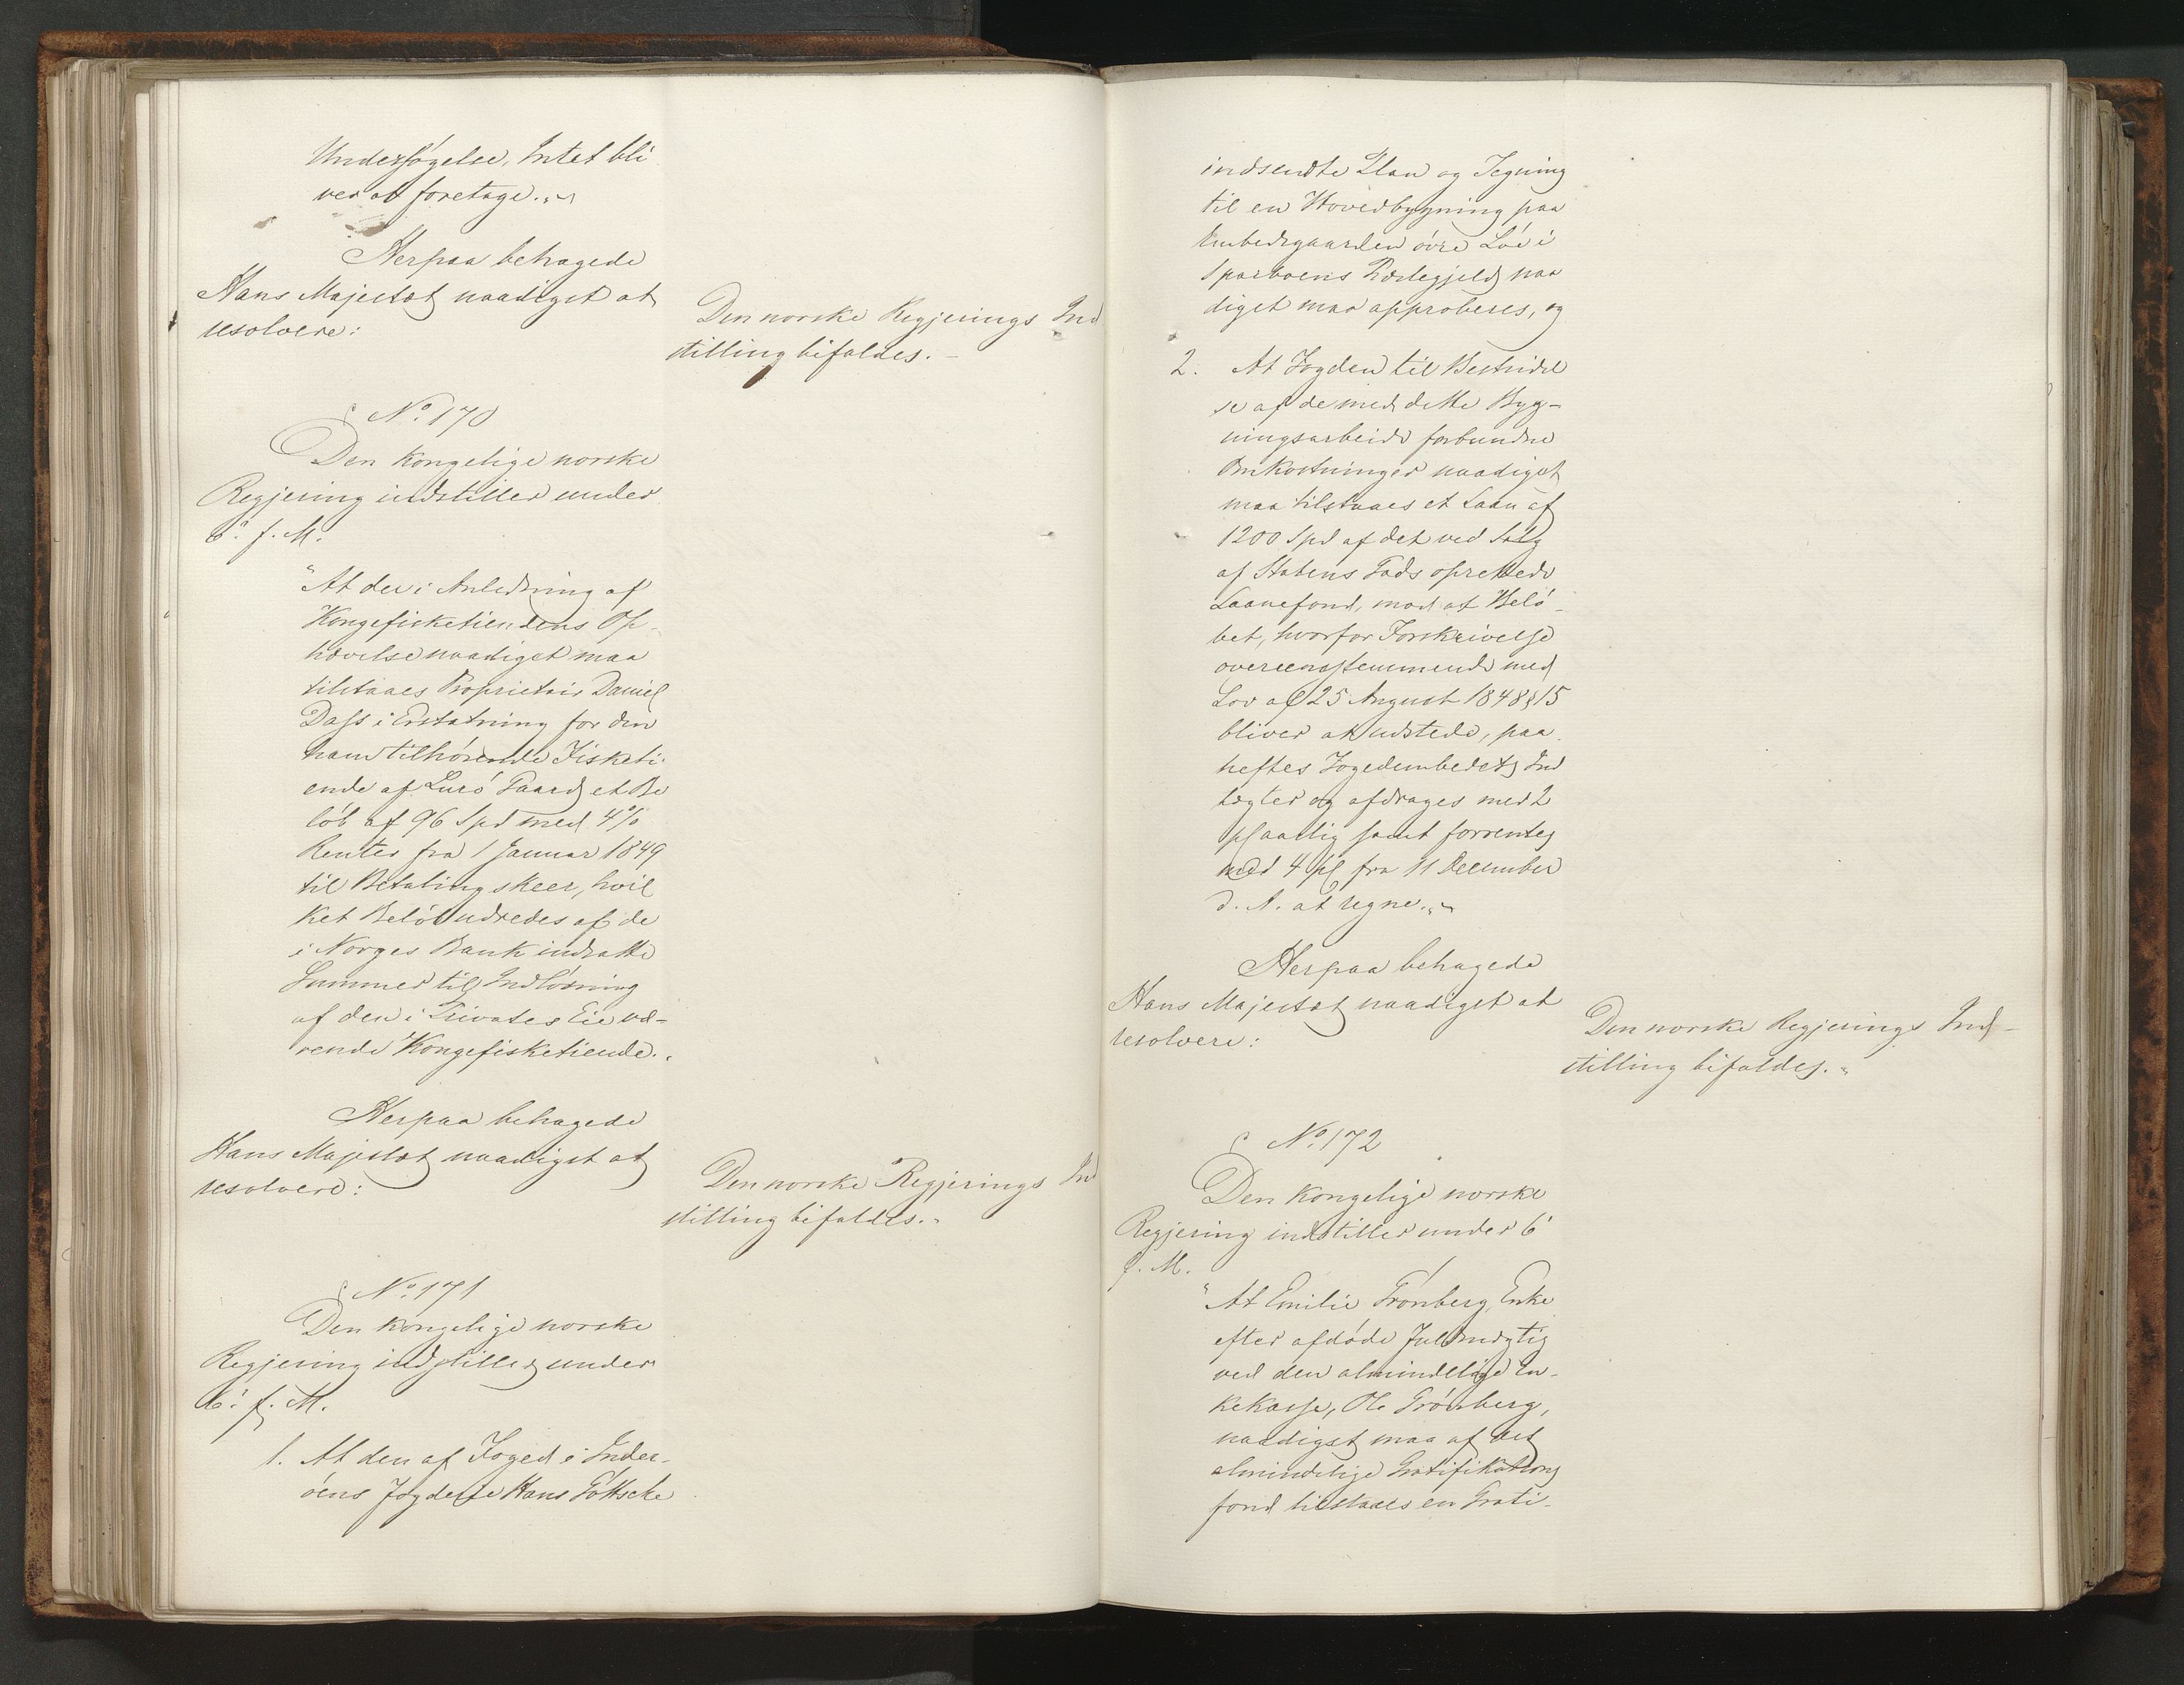 Undersøgelse, Intet bli
ver at foretage."
Herpaa behagede
Hans Majestæt naadigst at
resolvere:
Den norske Regjerings Ind
stilling bifaldes. -
No. 170
Den kongelige norske
Regjering indstiller under
6. f. M.
"At der i Anledning af
Kongefisketiendens Op-
hævelse naadigst maa
tilstaaes Proprietair Daniel
Dass i Erstatning for den
ham tilhørende Fisketi-
ende af Lurø Gaard et Be
løb af 96 Spd med 4%
Renter fra 1 Januar 1849
til Betaling skeer, hvil
ket Beløb udredes af de
i Norges Bank indsatte
Summer til Indløsning
af den i Privates Eie væ-
rende Kongefisketiende."
Herpaa behagede
Hans Majestæt naadigst at
resolvere:
Den norske Regjerings Ind
stilling bifaldes."
No. 171
Den kongelige norske
Regjering indstiller under
6. f. M.
1. At den af Foged i Inder-
øens Fogderie Hans Gøttsche
indsendte Plan og Tegning
til en Hovedbygning paa
Embedsgaarden øvre Løe i
Sparboens Præstegjeld naa
digst maa approberes, og
2. At Fogden til Bestridel
se af de med dette Byg-
ningsarbeide forbundne
Omkostninger naadigst
maa tilstaaes et Laan af
1200 Spd af det ved Salg
af Statens Gods oprettede
Laanefond, mod at Belø-
bet, hvorfor Forskrivelse
overeensstemmende med
Lov af 25 August 1848 § 15
bliver at udstede, paa
heftes Fogedembedets Ind
tægter og afdrages med 2
pC aarlig samt forrentes
med 4 pC fra 11 December
d. A. at regne."
Herpaa behagede
Hans Majestæt naadigst at
resolvere:
Den norske Regjerings Ind-
stilling bifaldes."
No. 172
Den kongelige norske
Regjering indstiller under 6
f. M.
"At Emilie Grønberg, Enke
efter afdøde Fuldmægtig
ved den almindelige En-
kekasse, Ole Grønberg,
naadigst maa af det
almindelige Gratifikations
fond tilstaaes en Grati-